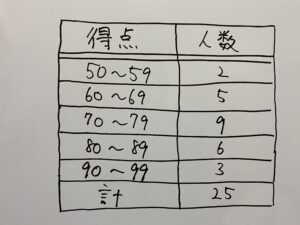 得点 人数
50～59 2
60～69 5
70～79 9
80～89 6
90～99 3
計 25